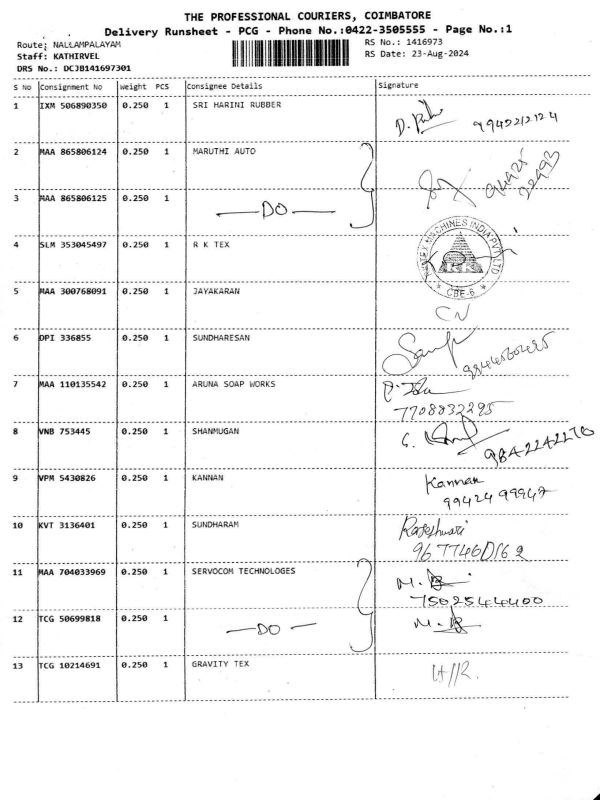 THE PROFESSIONAL COURIERS, COIMBATORE
Delivery Runsheet - PCG - Phone No.:0422-3505555 - Page No.:1
Route: NALLAMPALAYAM
RS No.: 1416973
Staff: KATHIRVEL
RS Date: 23-Aug-2024
DRS No.: DCJB141697301
S No Consignment No Weight PCS Consignee Details Signature
1 IXM 506890350 0.250 1 SRI HARINI RUBBER
9942212124
2 MAA 865806124 0.250 1 MARUTHI AUTO
94425
22493
3 MAA 865806125 0.250 1 —DO—
4 SLM 353045497 0.250 1 R K TEX
MACHINES INDIA PVT LTD
CBE-6
5 MAA 300768091 0.250 1 JAYAKARAN
CN
6 DPI 336855 0.250 1 SUNDHARESAN
7 MAA 110135542 0.250 1 ARUNA SOAP WORKS
7708832295
8 VNB 753445 0.250 1 SHANMUGAN
9842242270
9 VPM 5430826 0.250 1 KANNAN Kannan
99424 99947
10 KVT 3136401 0.250 1 SUNDHARAM Rajeshwari
11 MAA 704033969 0.250 1 SERVOCOM TECHNOLOGES
7502544400
12 TCG 50699818 0.250 1 —DO—
13 TCG 10214691 0.250 1 GRAVITY TEX